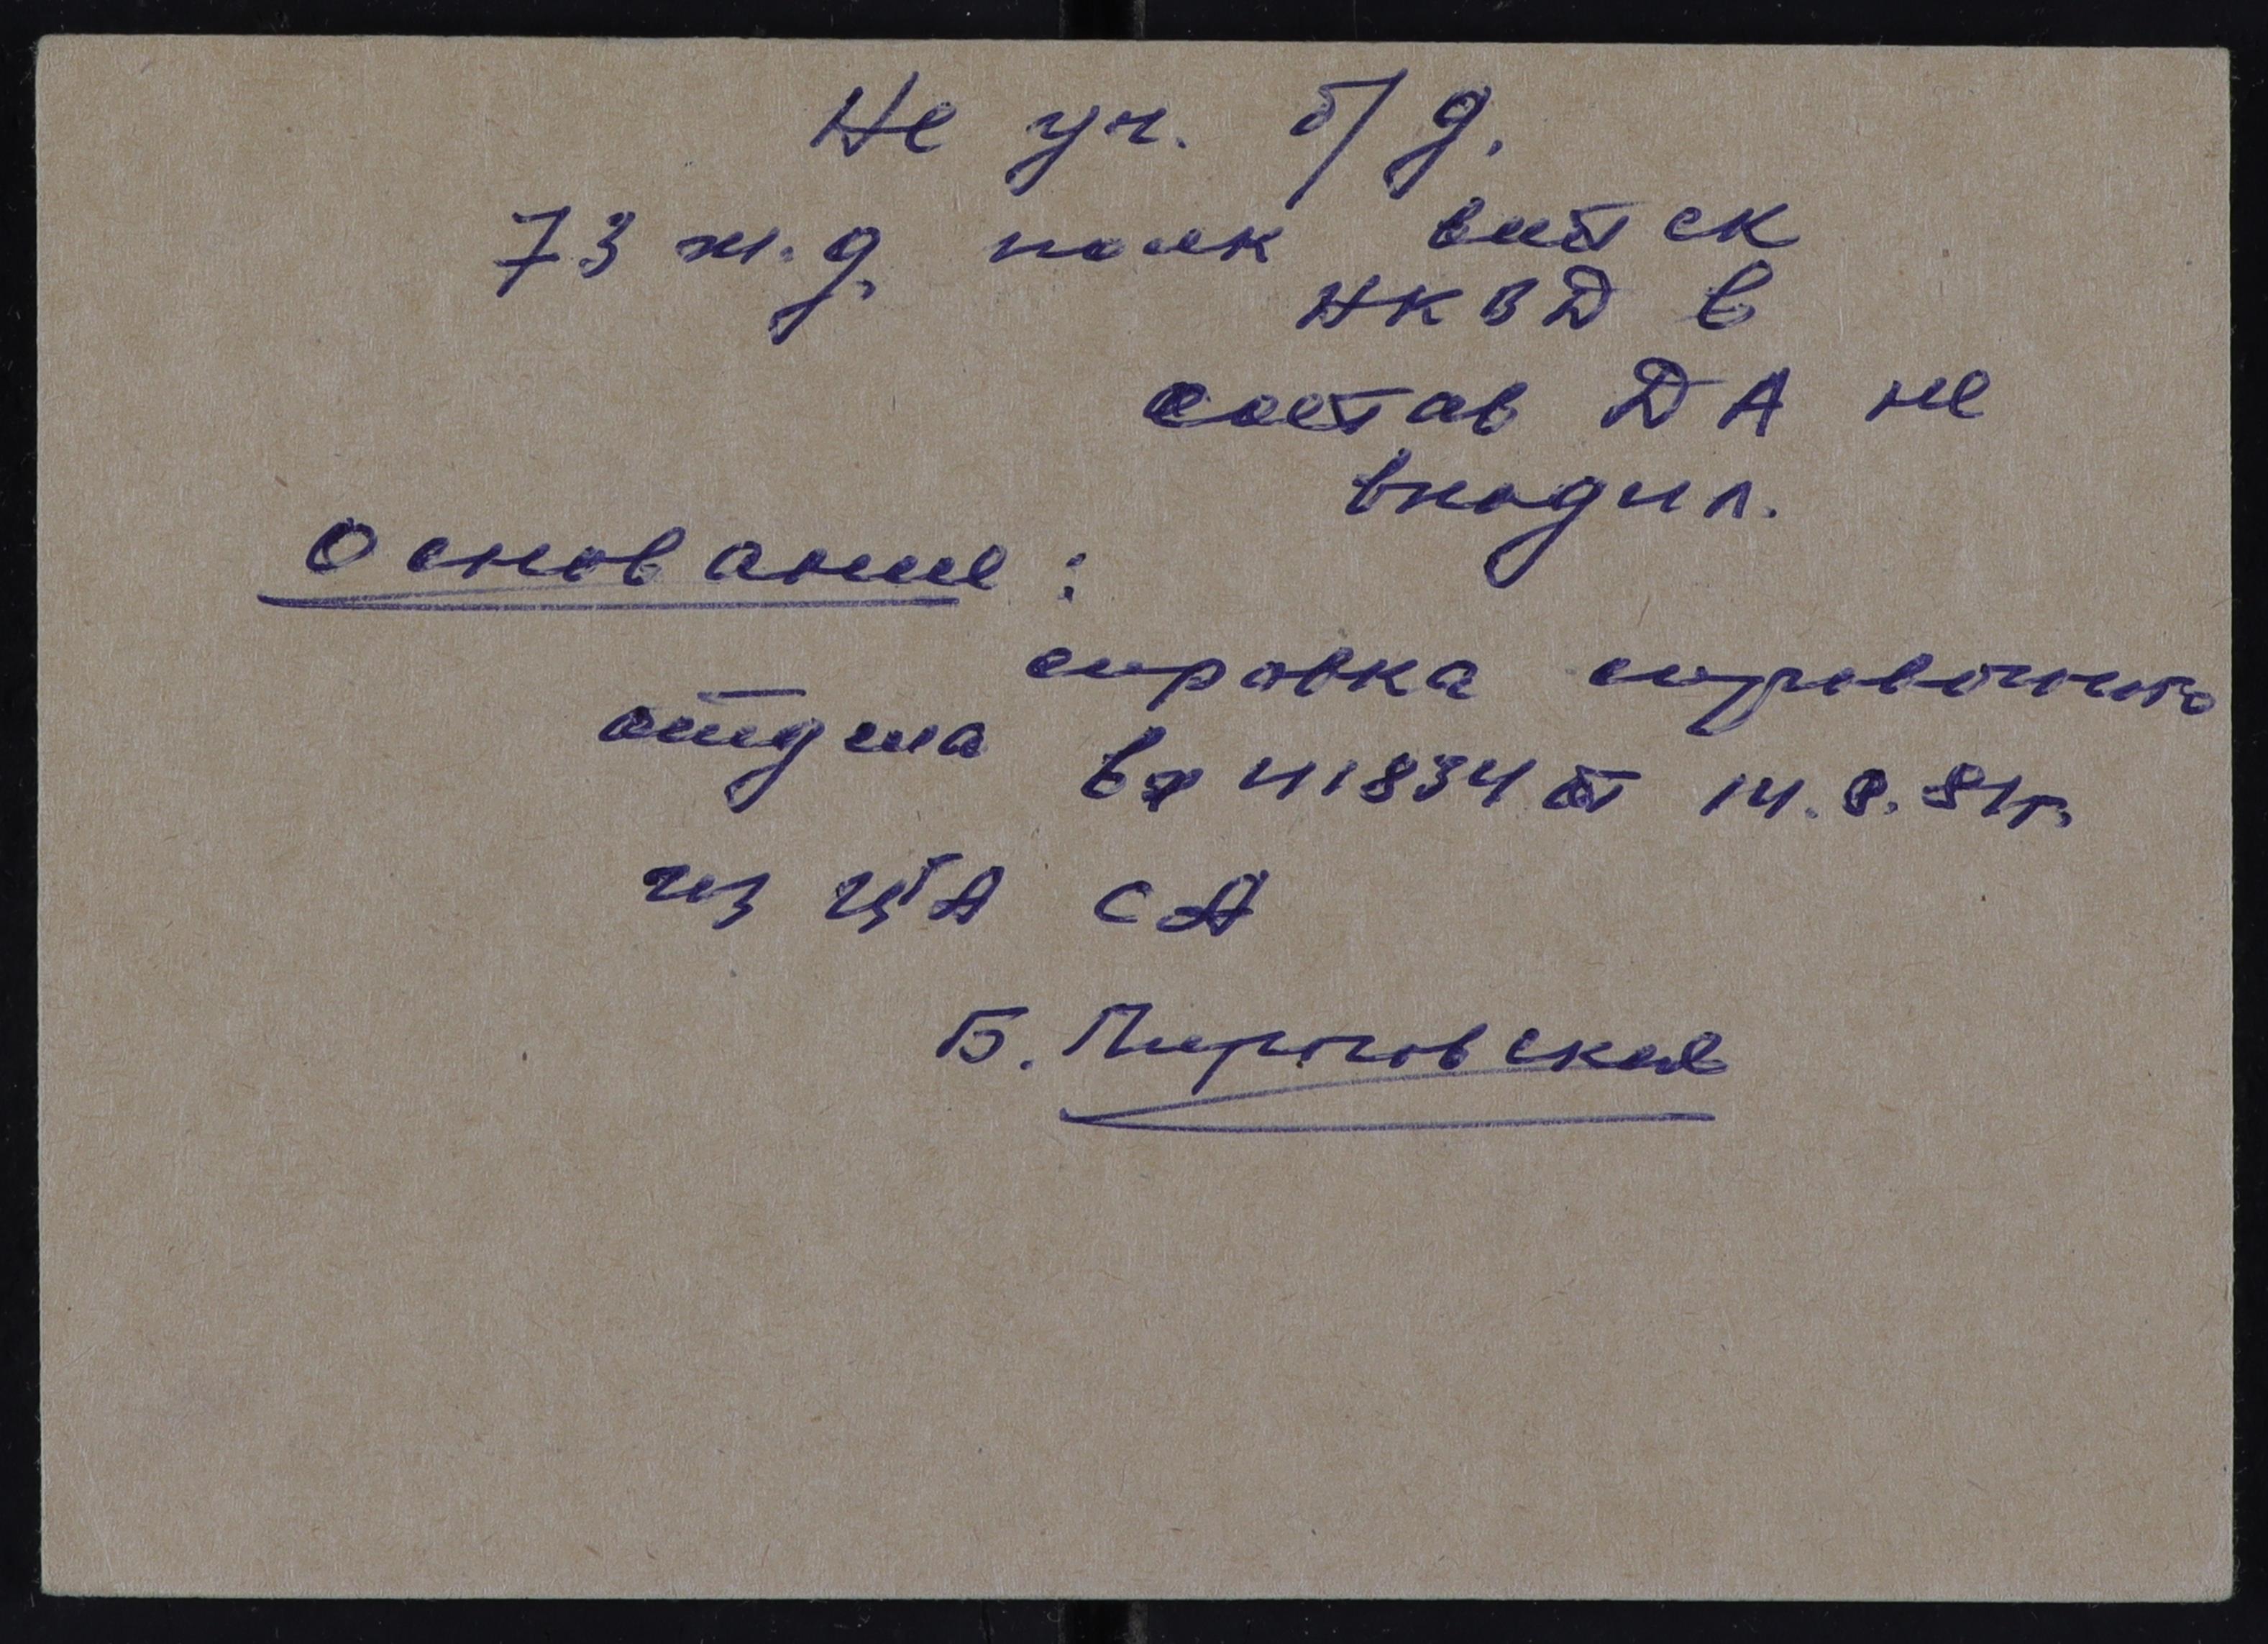 Не уч. б/д.
73 ж.д. полк войск
НКВД в
состав ДА не
входил.
Основание:
справка справочного
отдела вх 41834 от 14.8.81г.
из ЦА СА
Б. Пироговская